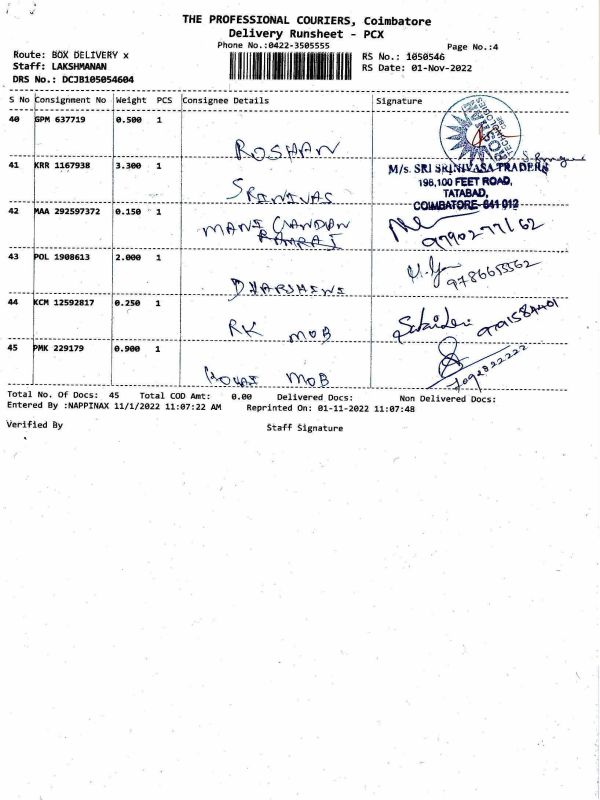 THE PROFESSIONAL COURIERS, Coimbatore
Delivery Runsheet - PCX
Phone No.:0422-3505555
Page No.:4
Route: BOX DELIVERY x
RS No.: 1050546
Staff: LAKSHMANAN
RS Date: 01-Nov-2022
DRS No.: DCJB105054604
S No Consignment No Weight PCS Consignee Details Signature
40 GPM 637719 0.500 1
ROSHAN
41 KRR 1167938 3.300 1
M/s. SRI SRINIVASA TRADERS
198,100 FEET ROAD,
TATABAD,
COIMBATORE-641 012
SRINIVAS
42 MAA 292597372 0.150 1
MANI CHANDRAN
RAMRAJ
9790277162
43 POL 1908613 2.000 1
DHARSHINI
9786655562
44 KCM 12592817 0.250 1
RK MOB
9791584401
45 PMK 229179 0.900 1
MOB
7092822222
Total No. Of Docs: 45 Total COD Amt: 0.00 Delivered Docs: Non Delivered Docs:
Entered By :NAPPINAX 11/1/2022 11:07:22 AM Reprinted On: 01-11-2022 11:07:48
Verified By
Staff Signature